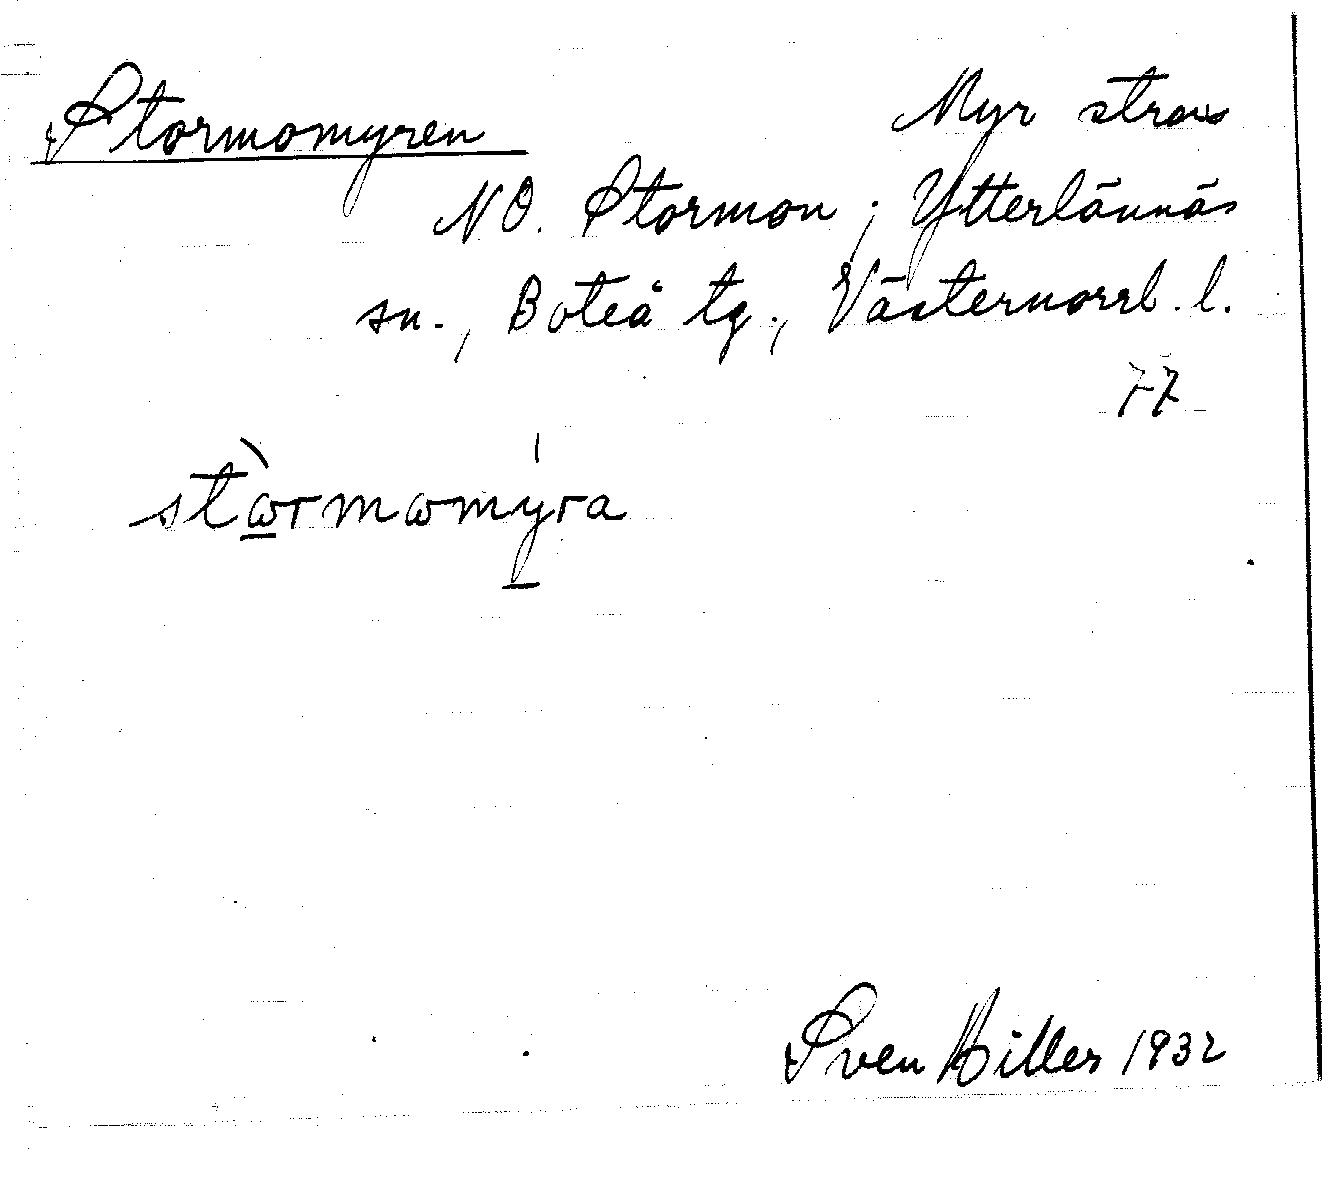 Stormomyren Myr strax
NO. Stormon; Ytterlännäs
sn., Boteå tg., Västernorrl. l.
77
stɷ̀rmɷmýra
Sven Hiller 1932